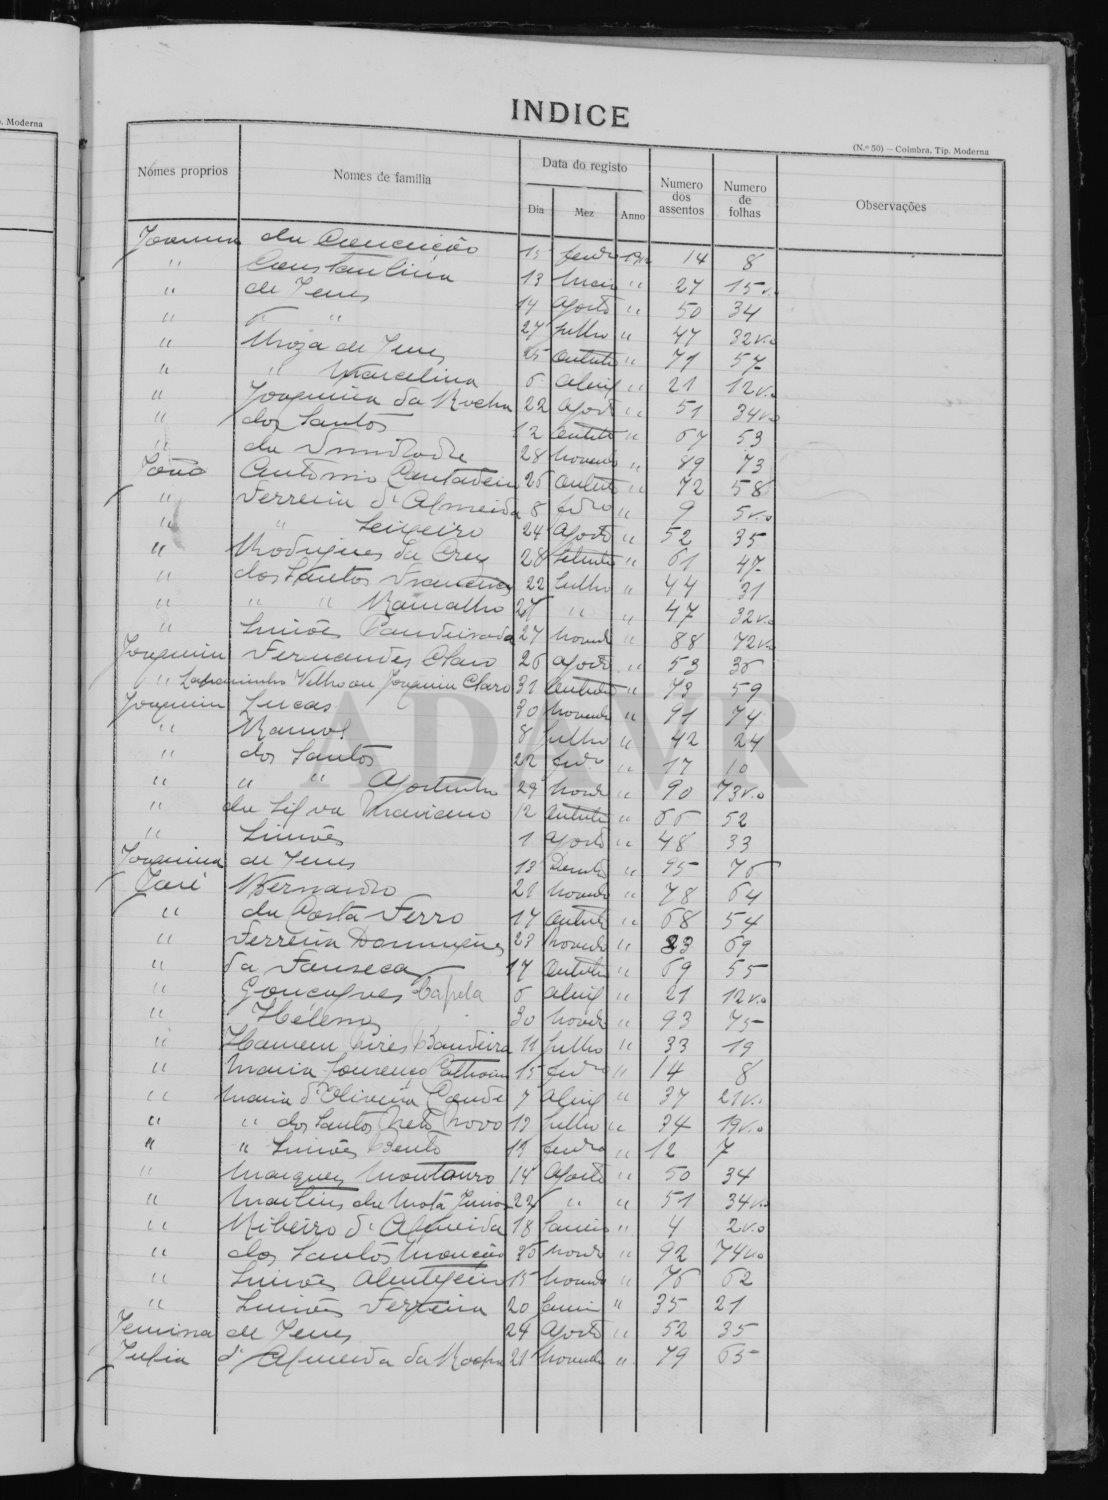 . Moderna
INDICE
(N.º 50) — Coimbra, Tip. Moderna
Nómes proprios Nomes de familia Data do registo Numero dos assentos Numero de folhas Observações
Dia Mez Anno
Joanna da Conceição 15 14 8
" Constantina 13 Maio " 27 15 v.o
" de Jesus 14 Agosto " 50 34
" " " 27 Julho " 47 32 v.o
" de Jesus 25 Outubro " 71 57
" " Marcelina 6 Abril " 21 12 v.o
" Joaquina da Rocha 22 Agosto " 51 34 v.o
" dos Santos 12 Outubro " 67 53
" da 28 Novembro " 89 73
João Antonio 26 Outubro " 72 58
" Ferreira d'Almeida 8 " 9 5 v.o
" " Leigeiro 24 Agosto " 52 35
" Rodrigues da Cruz 28 Setembro " 61 47
" dos Santos 22 Julho " 44 31
" " " Ramalho 27 " " 47 32 v.o
" Simões 27 Novembro " 88 72 v.o
Joaquim Fernandes Claro 26 Agosto " 53 36
" Velho ou Joaquim Claro 31 Outubro " 73 59
Joaquim Lucas 30 Novembro " 91 74
" Ramos 8 Julho " 42 24
" dos Santos 22 " 17 10
" " " Agostinho 29 " 90 73 v.o
" da Silva Mariano 12 Outubro " 66 52
" Simões 1 Agosto " 48 33
Joaquina de Jesus 13 " 95 76
José Bernardo 21 Novembro " 78 64
" da Costa Ferro 17 Outubro " 68 54
" Ferreira Domingues 23 Novembro " 83 69
" da Fonseca 17 Outubro " 69 55
" Gonçalves Capela 6 Abril " 21 12 v.o
" Heleno 30 " 93 75
" Homem Pires Bandeira 11 Julho " 33 19
" Maria Lourenço 15 " 14 8
" Maria d'Oliveira 7 Abril " 37 21 v.o
" " dos Santos Neto Novo 13 Julho " 34 19 v.o
" " Simões Bento " 12 7
" Marques Montouro 14 Agosto " 50 34
" Martins da Mota Junior 22 " " 51 34 v.o
" Ribeiro d'Almeida 18 " 4 2 v.o
" dos Santos " 92 74 v.o
" Simões 15 " 76 62
" Simões Ferreira 20 " 35 21
de Jesus 24 Agosto " 52 35
Julia d'Almeida da Rocha 21 Novembro " 79 65
ADAVR